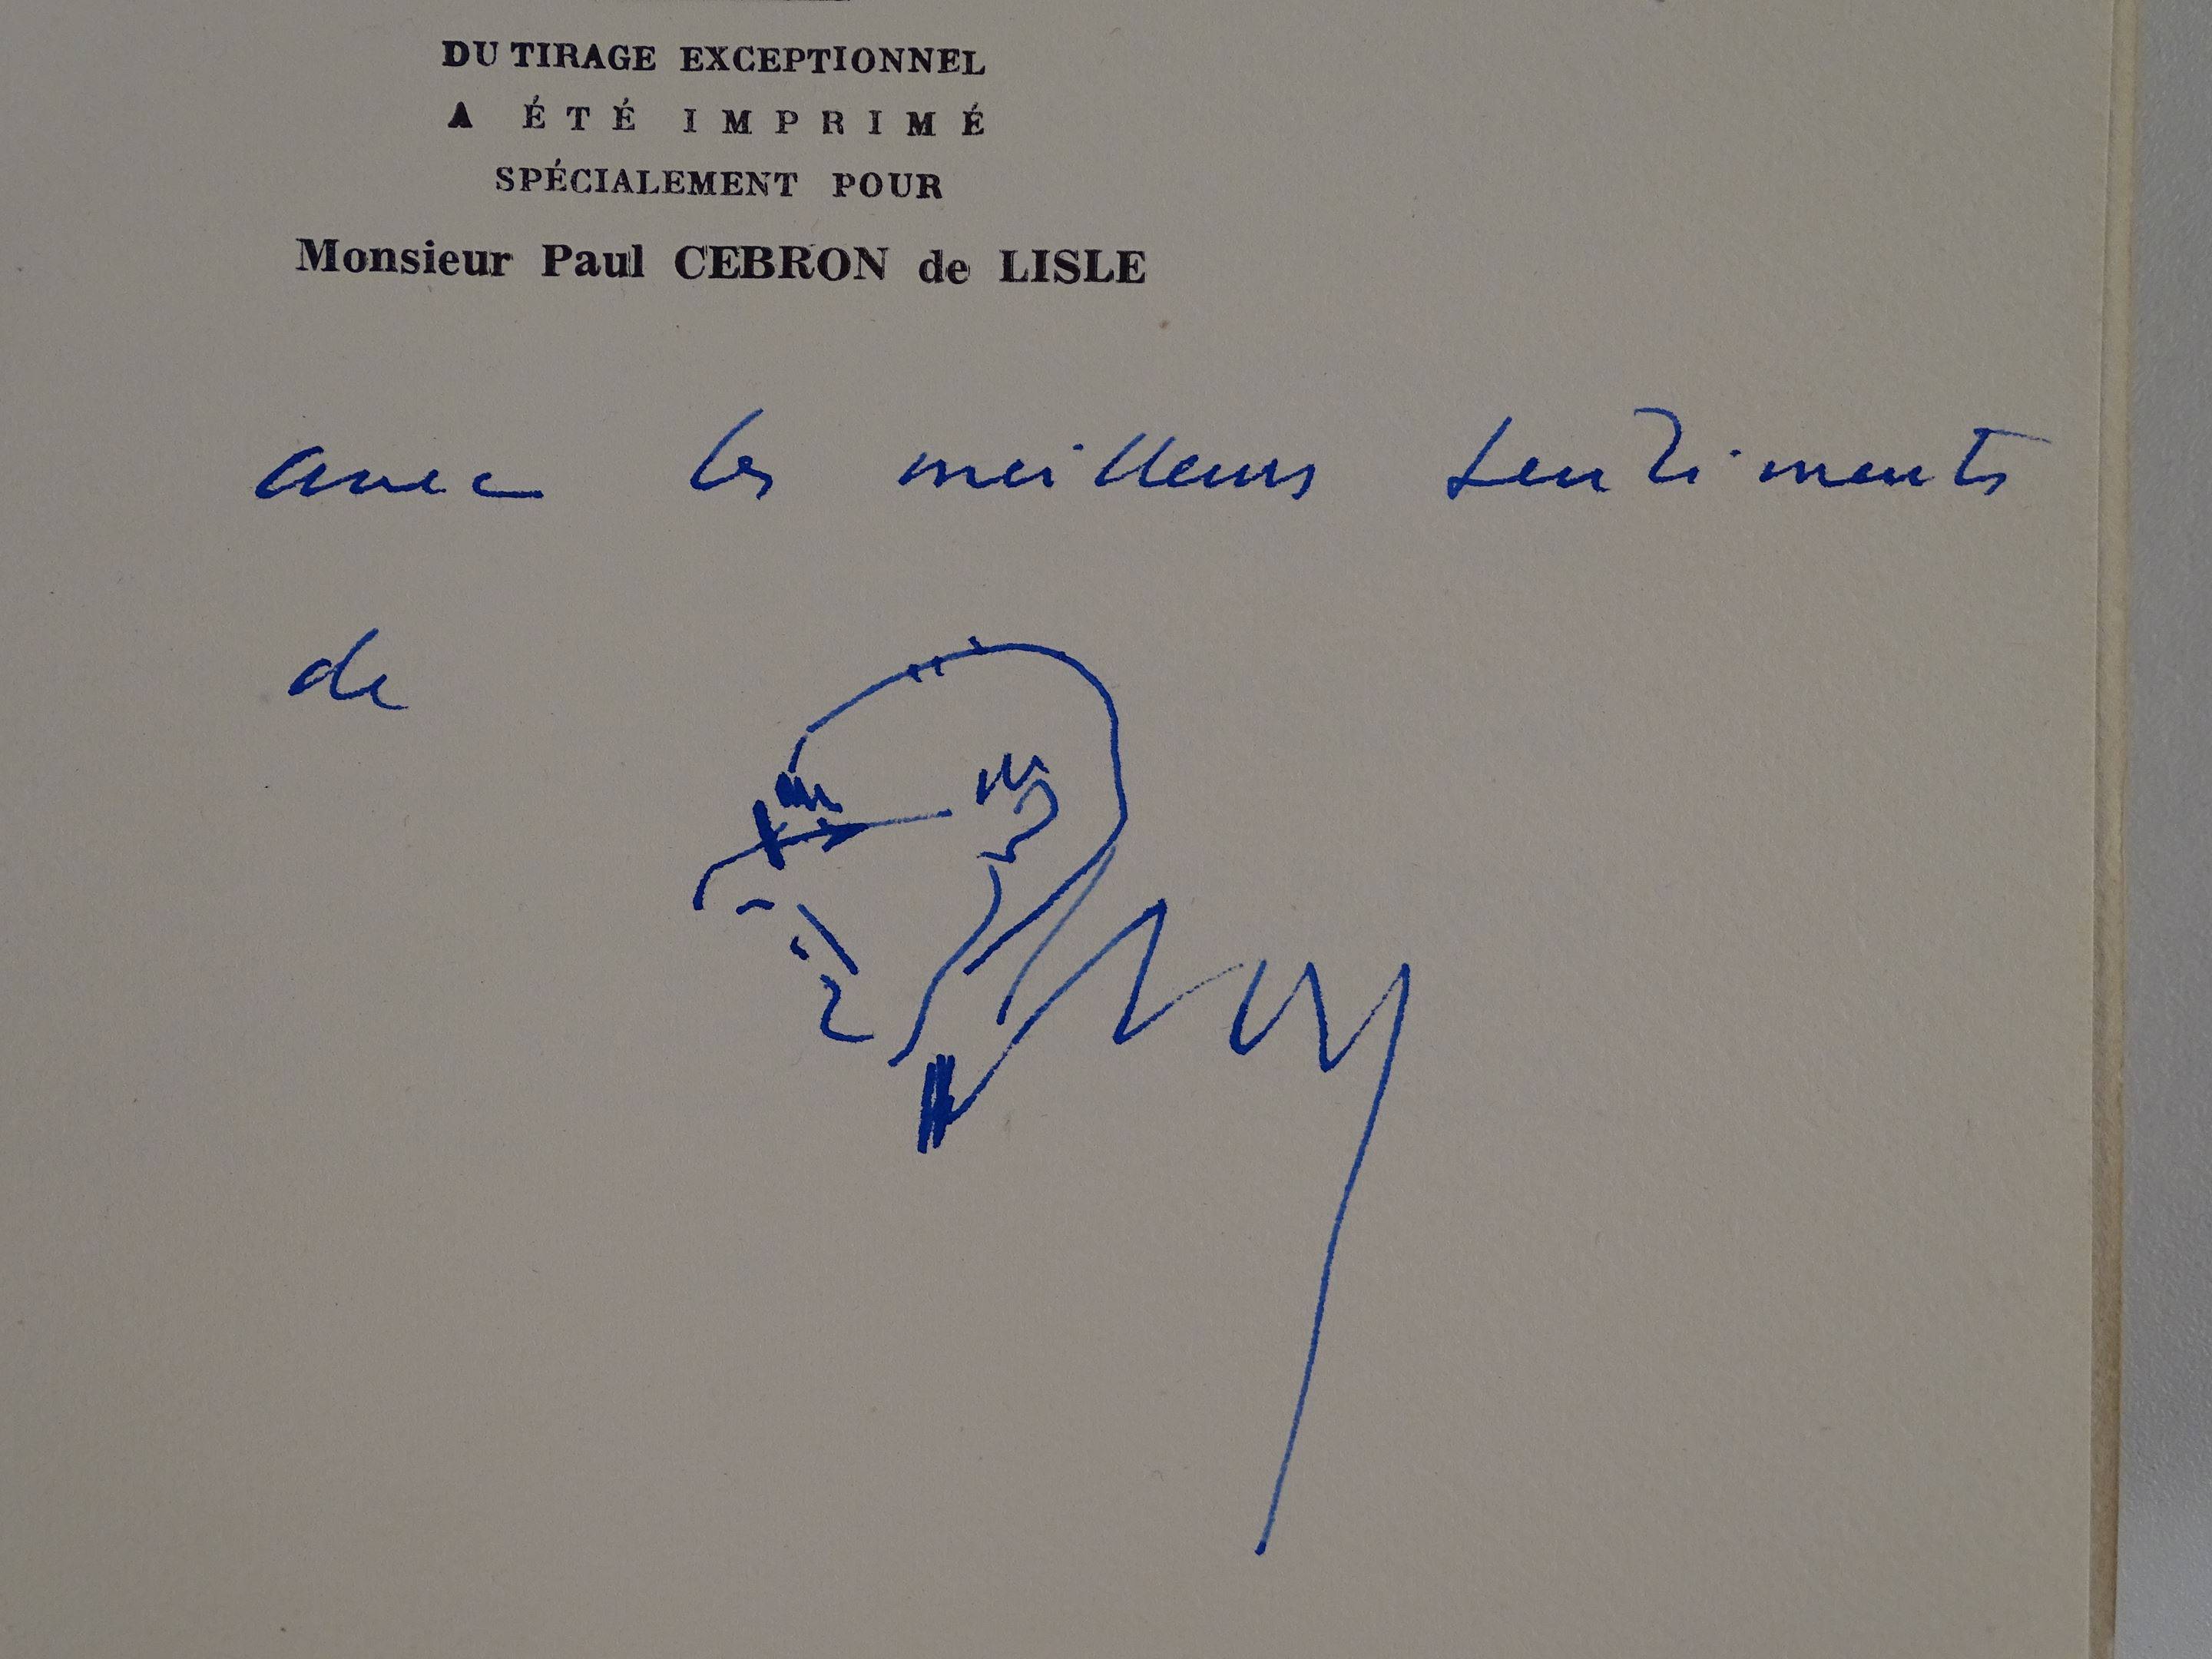 DU TIRAGE EXCEPTIONNEL
A ÉTÉ IMPRIMÉ
SPÉCIALEMENT POUR
Monsieur Paul CEBRON de LISLE
avec les meilleurs sentiments
de